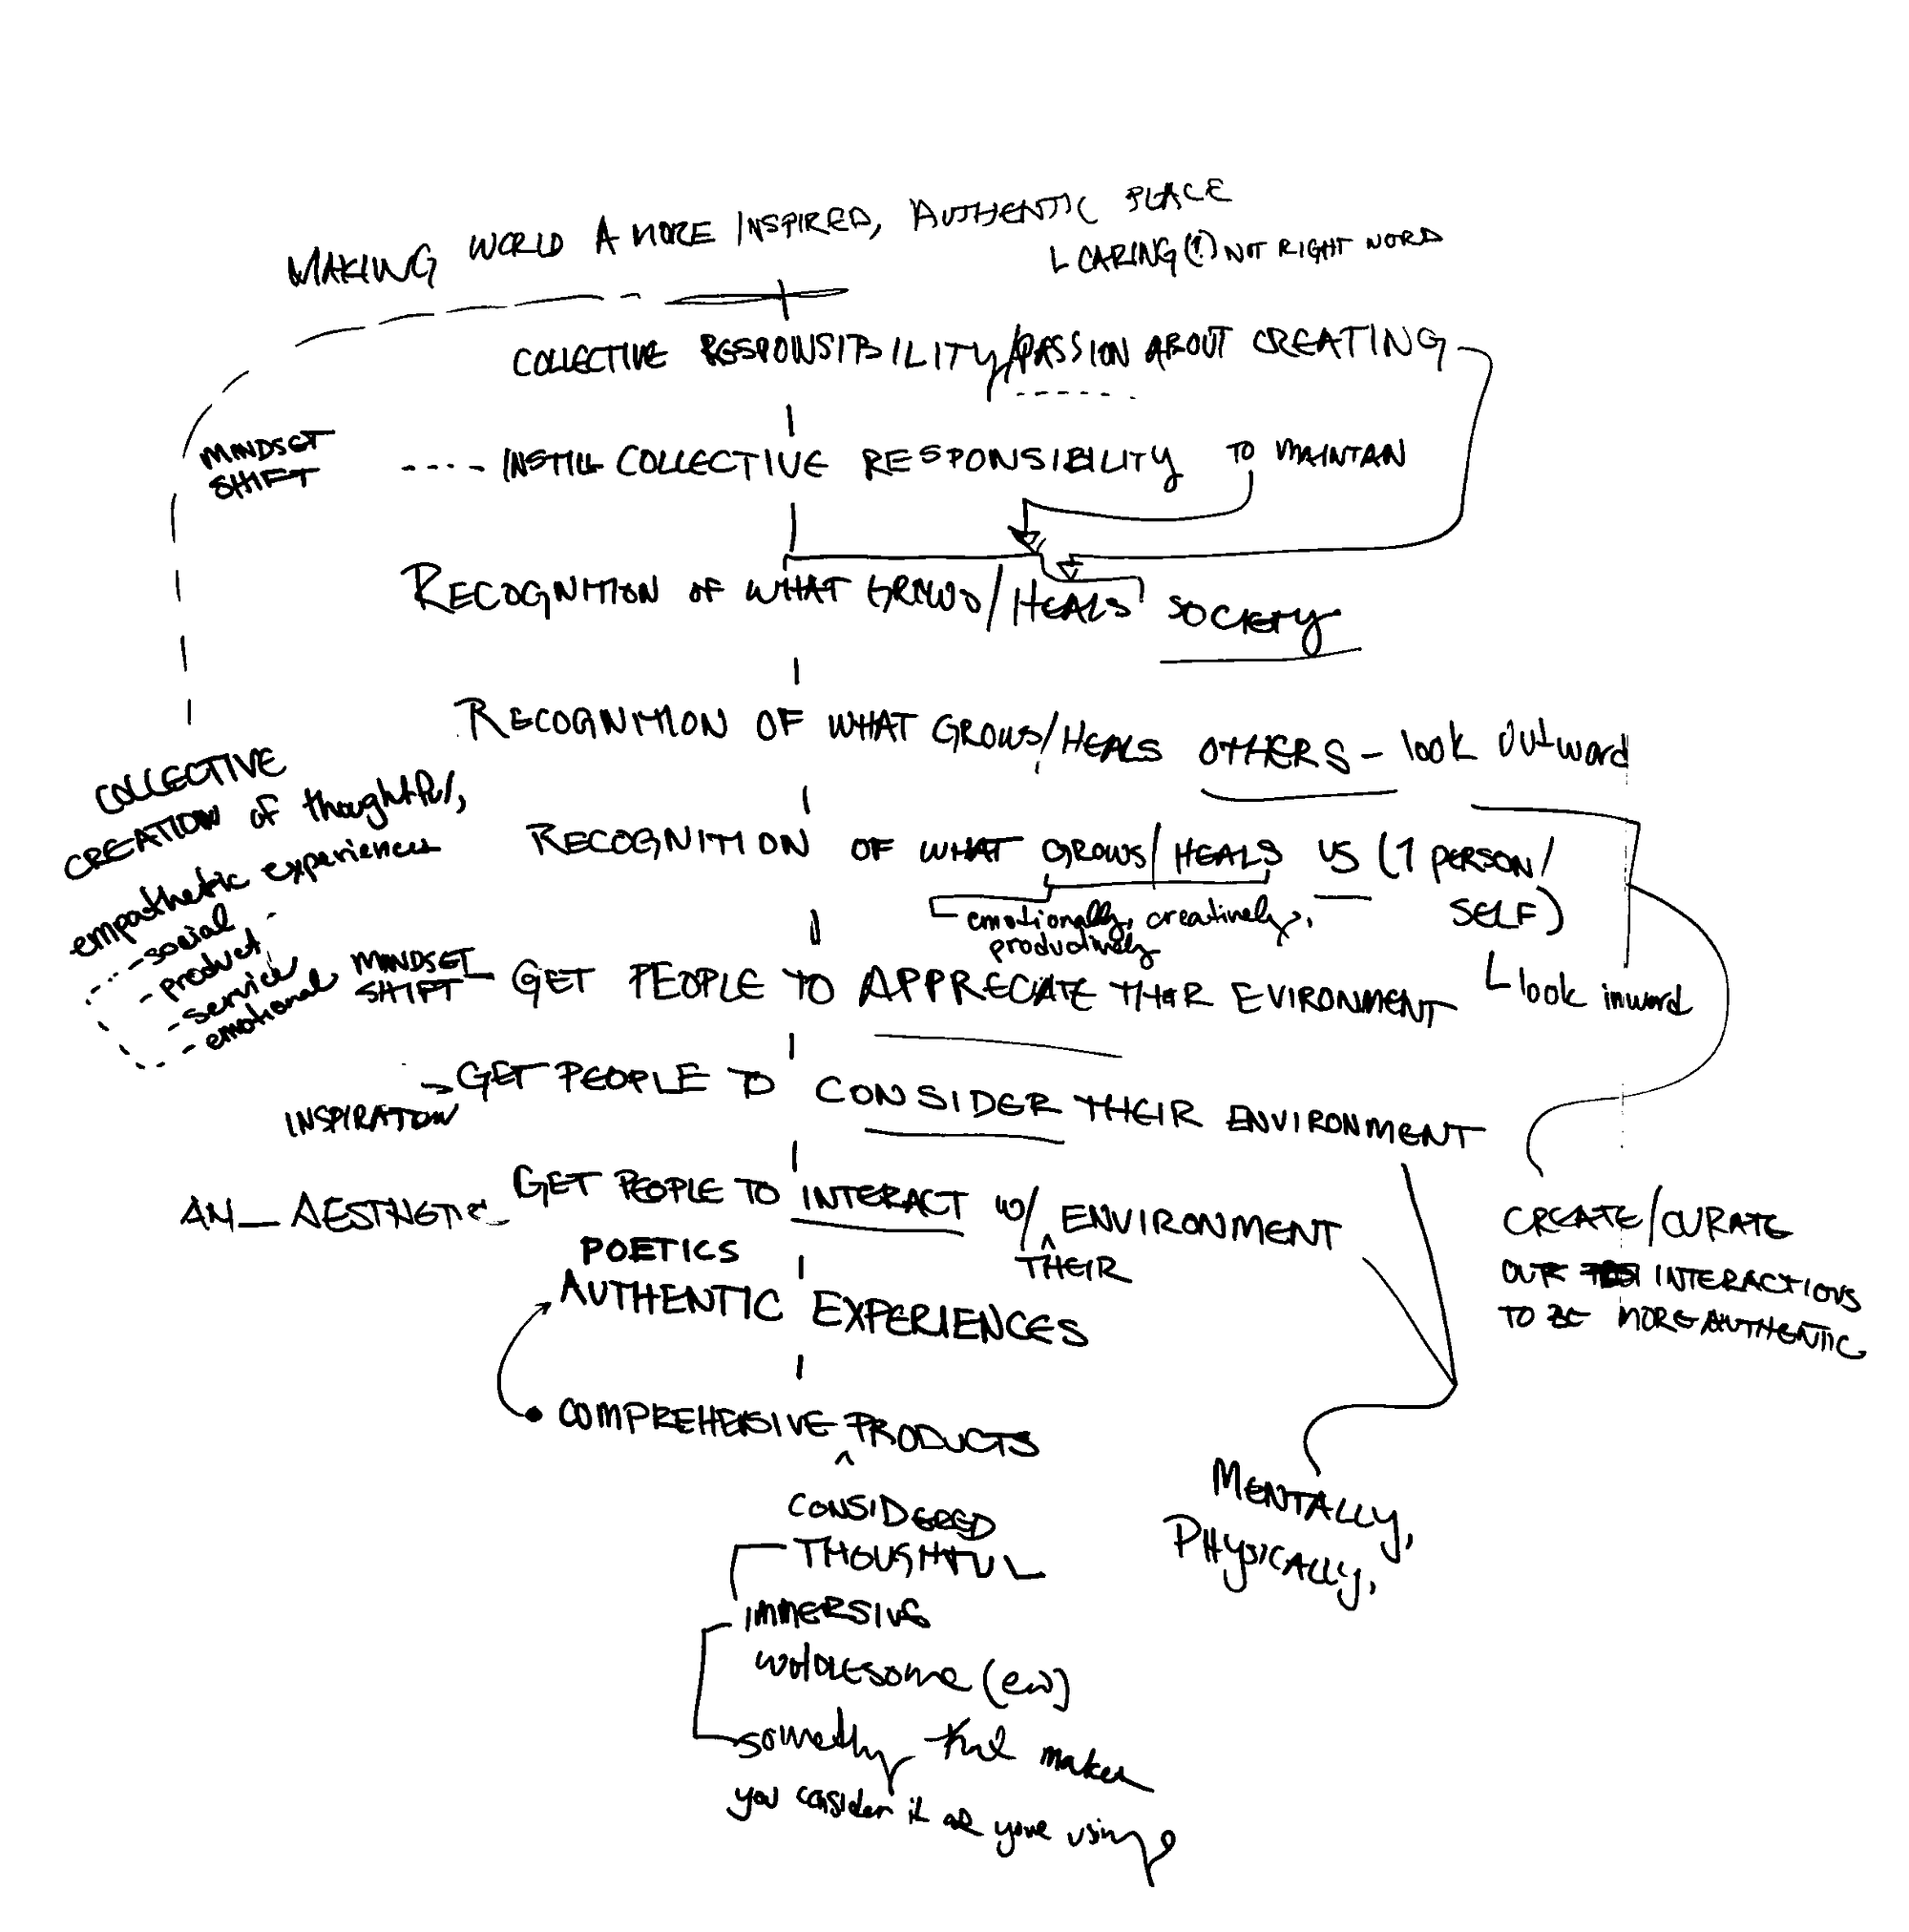 MAKING WORLD A MORE INSPIRED, AUTHENTIC PLACE
CARING (?) NOT RIGHT WORD
COLLECTIVE RESPONSIBILITY/PASSION ABOUT CREATING
MINDSET
SHIFT
INSTILL COLLECTIVE RESPONSIBILITY TO MAINTAN
RECOGNITION OF WHAT GROWS/HEALS SOCIETY
RECOGNITION OF WHAT GROWS/HEALS OTHERS - look outward
COLLECTIVE
CREATION of thoughtful,
empathetic experiences
- social
- product
- service
- emotional
RECOGNITION OF WHAT GROWS/HEALS US (1 PERSON/
SELF)
look inward
emotionally, creatively,
productively
MINDSET
SHIFT
GET PEOPLE TO APPRECIATE THEIR EVIRONMENT
INSPIRATION
GET PEOPLE TO CONSIDER THEIR ENVIRONMENT
AESTHETIC
GET PEOPLE TO INTERACT W/ ENVIRONMENT
THEIR
CREATE/CURATE
OUR INTERACTIONS
TO BE MORE AUTHENTIC
POETICS
AUTHENTIC EXPERIENCES
COMPREHENSIVE PRODUCTS
MENTALLY,
PHYSICALLY,
CONSIDERED
THOUGHTFUL
IMMERSIVE
WHOLESOME (ew)
something that makes
you consider it as you're using